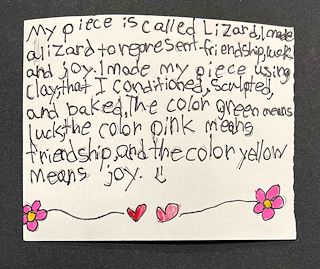 My piece is called Lizard, I made
a lizard to represent friendship, luck
and joy. I made my piece using
clay, that I conditioned, sculpted,
and baked, The color green means
luck, the color pink means
friendship, and the color yellow
means joy. :)